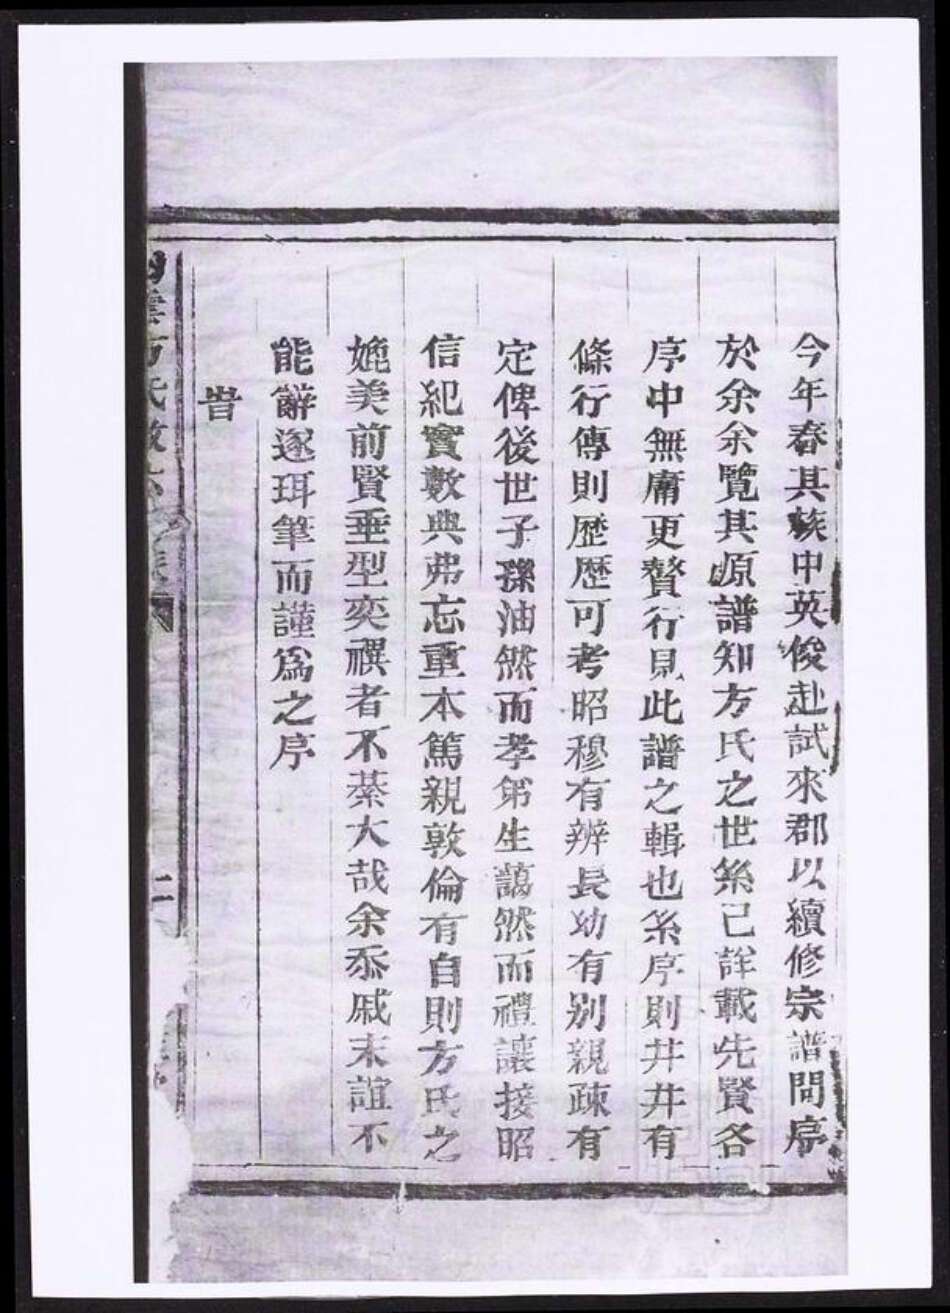 今年春其蔟中英俊赴試來郡以續修宗譜問序
於余余覽其原譜知方氏之世系已詳載先賢各
序中無庸更贅行見此譜之輯也系序則井井有
條行傳則歷歷可考昭穆有辨長幼有别親疎有
定俾後世子孫油然而孝弟生藹然而禮讓接昭
信紀實數典弗忘重本篤親敦倫有自則方氏之
媲美前賢垂型奕禩者不綦大哉余忝戚末誼不
能辭遂珥筆而謹為之序
旹
方氏
二